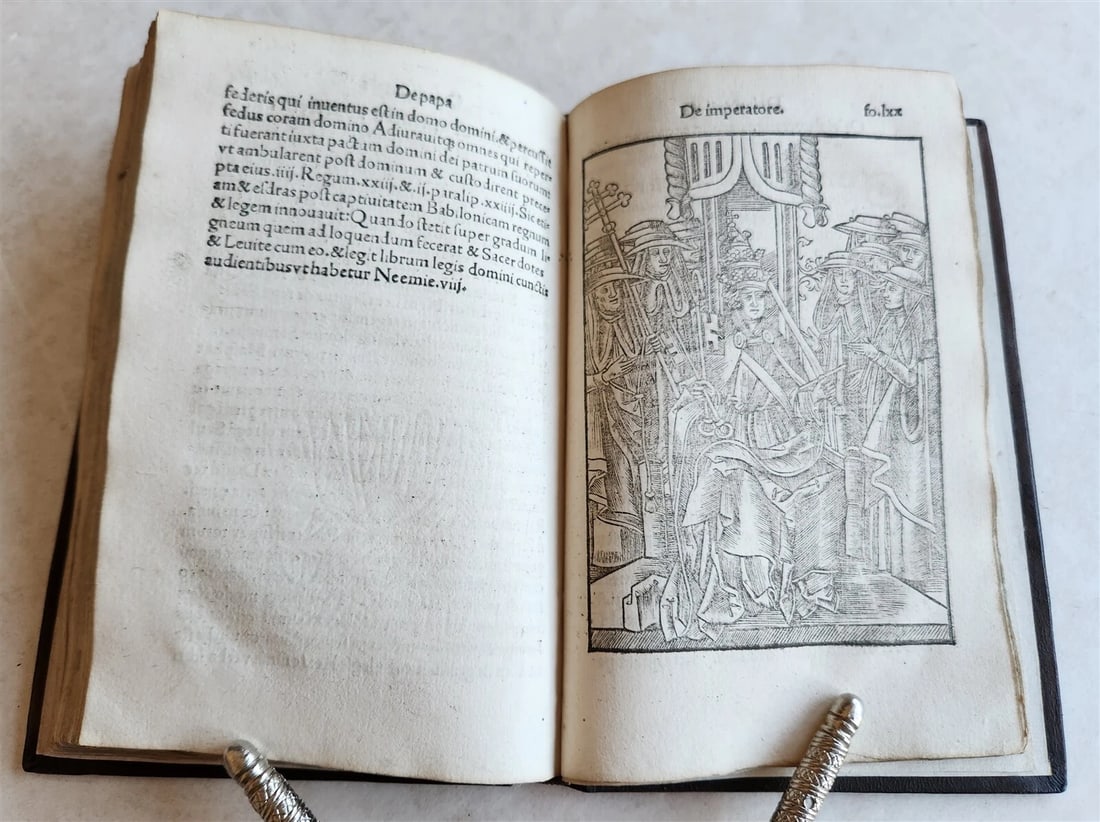 De papa
federis qui inventus est in domo domini. & percussit
fedus coram domino Adiurauitqʒ omnes qui reperti
ti fuerant iuxta pactum domini dei patrum suorum:
vt ambularent post dominum & custodirent precep
pta eius. iiij. Regum. xxiij. & .ij. paralip. xxiiij. Sic eti
am & esdras post captiuitatem Babilonicam regnum
& legem innouauit: Quando stetit super gradum li
gneum quem ad loquendum fecerat & Sacerdotes
& Leuite cum eo. & legit librum legis domini cunctis
audientibus vt habetur Neemie. viij.
De imperatore.
fo. lxx